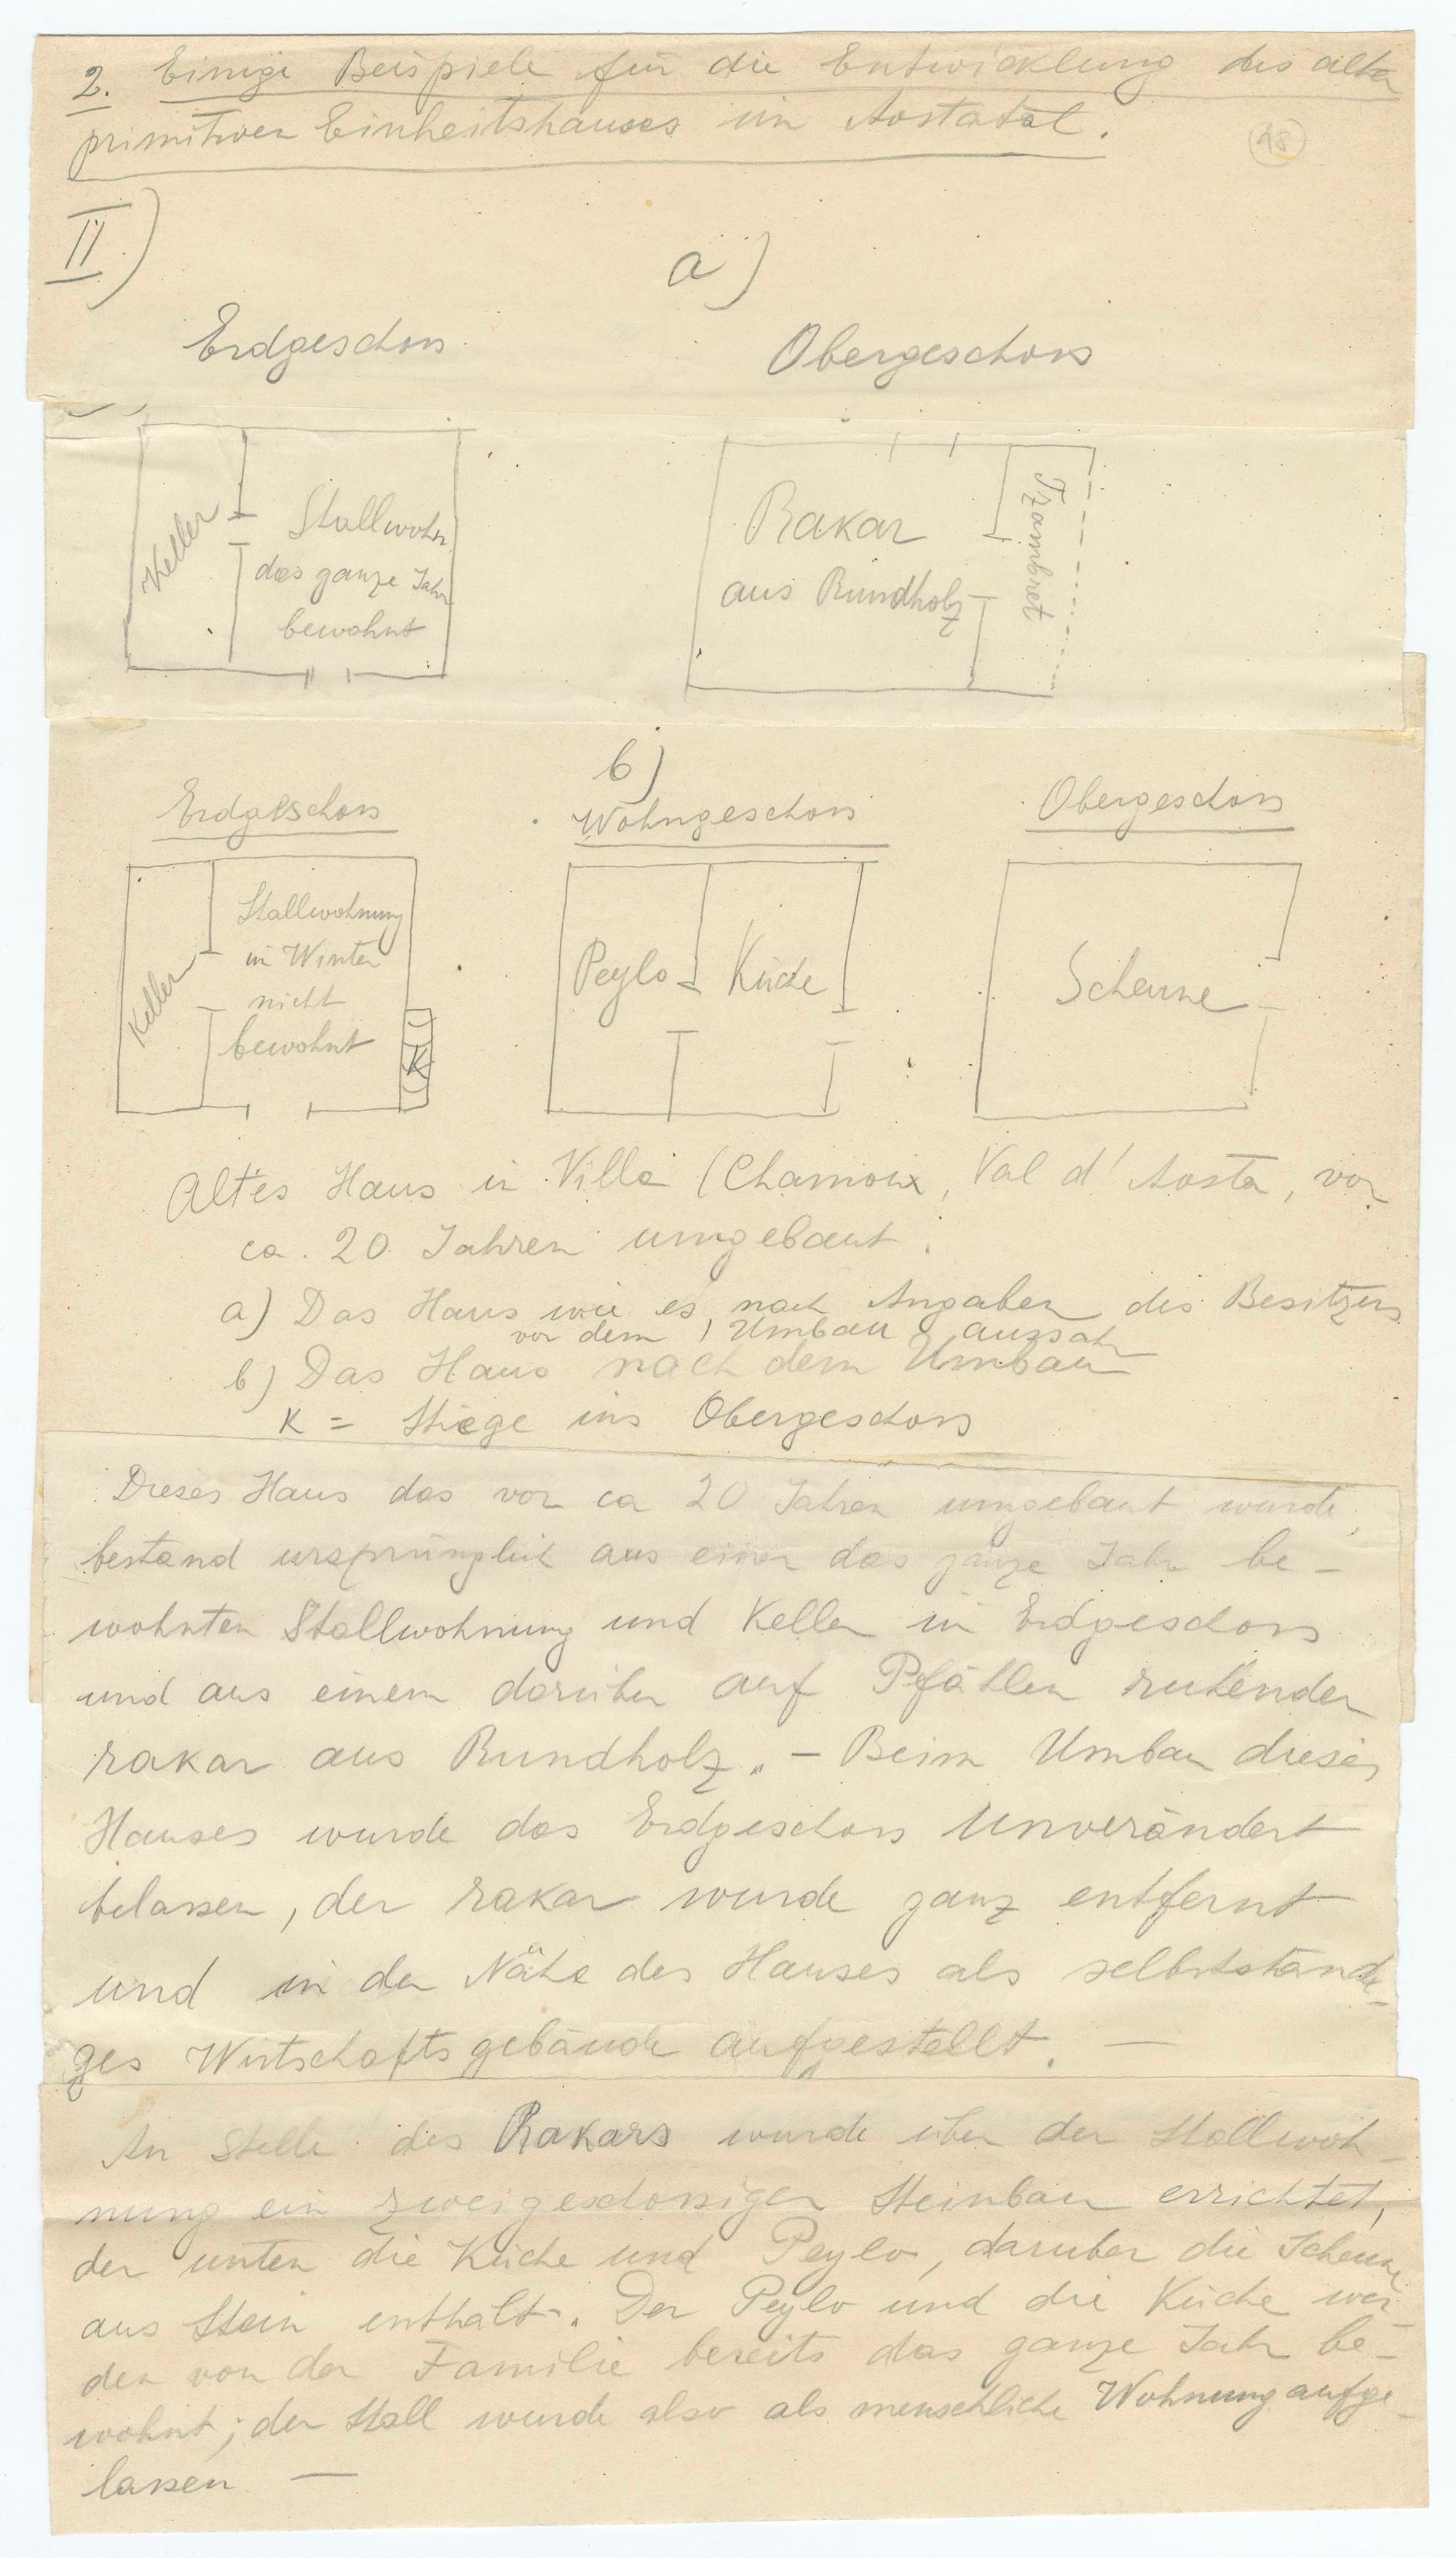 2. Einige Beispiele für die Entwicklung des alten
primitiven Einheitshauses im Aostatal.
98
II)
a)
Erdgeschoss
Obergeschoss
Keller
Stallwohn.
das ganze Jahr
bewohnt
Rakar
aus Rundholz
Tzambret
b)
Erdgeschoss
Wohngeschoss
Obergeschoss
Keller
Stallwohnung
im Winter
nicht
bewohnt
K
Peylo
Küche
Scheune
Altes Haus in Ville (Chamoix, Val d'Aosta, vor
ca. 20 Jahren umgebaut.
a) Das Haus wie es, nach Angaben des Besitzers
vor dem Umbau aussah
b) Das Haus nach dem Umbau
K = Stiege ins Obergeschoss
Dieses Haus das vor ca 20 Jahren umgebaut wurde,
bestand ursprünglich aus einer das ganze Jahr be-
wohnten Stallwohnung und Keller im Erdgeschoss
und aus einem darüber auf Pfählen ruhenden
rakar aus Rundholz. – Beim Umbau dieses
Hauses wurde das Erdgeschoss unverändert
belassen, der rakar wurde ganz entfernt
und in der Nähe des Hauses als selbstständi-
ges Wirtschaftsgebäude aufgestellt. —
An Stelle des Rakars wurde über der Stallwoh-
nung ein zweigeschossiger Steinbau errichtet,
der unten die Küche und Peylo, darüber die Scheune
aus Stein enthält. Der Peylo und die Küche wer-
den von der Familie bereits das ganze Jahr be-
wohnt; der Stall wurde also als menschliche Wohnung aufge-
lassen. —